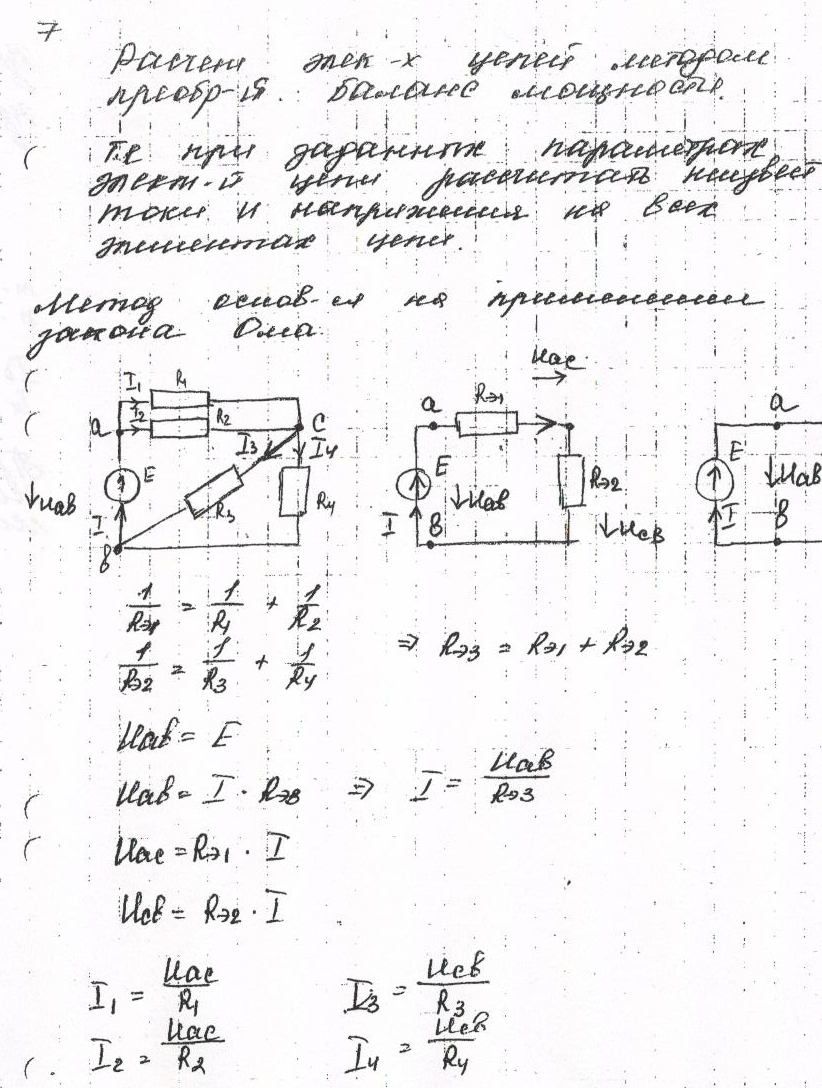 7
Расчет элек-х цепей методом
преобр-й. Баланс мощности.
Т.е при заданных параметрах
элект-й цепи рассчитать неизвест
токи и напряжения на всех
элементах цепи.
Метод основ-ся на применении
закона Ома
I1 R1
a I2 R2 C
I3 I4
E
Uав
R3 R4
I
в
Uас
a Rэ1
E
Uав Rэ2
I в Uсв
a
E
Uав
I в
1/Rэ1 = 1/R1 + 1/R2
1/Rэ2 = 1/R3 + 1/R4 ⇒ Rэ3 = Rэ1 + Rэ2
Uав = E
Uав = I · Rэ3 ⇒ I = Uав/Rэ3
Uас = Rэ1 · I
Uсв = Rэ2 · I
I1 = Uас/R1 I3 = Uсв/R3
I2 = Uас/R2 I4 = Uсв/R4